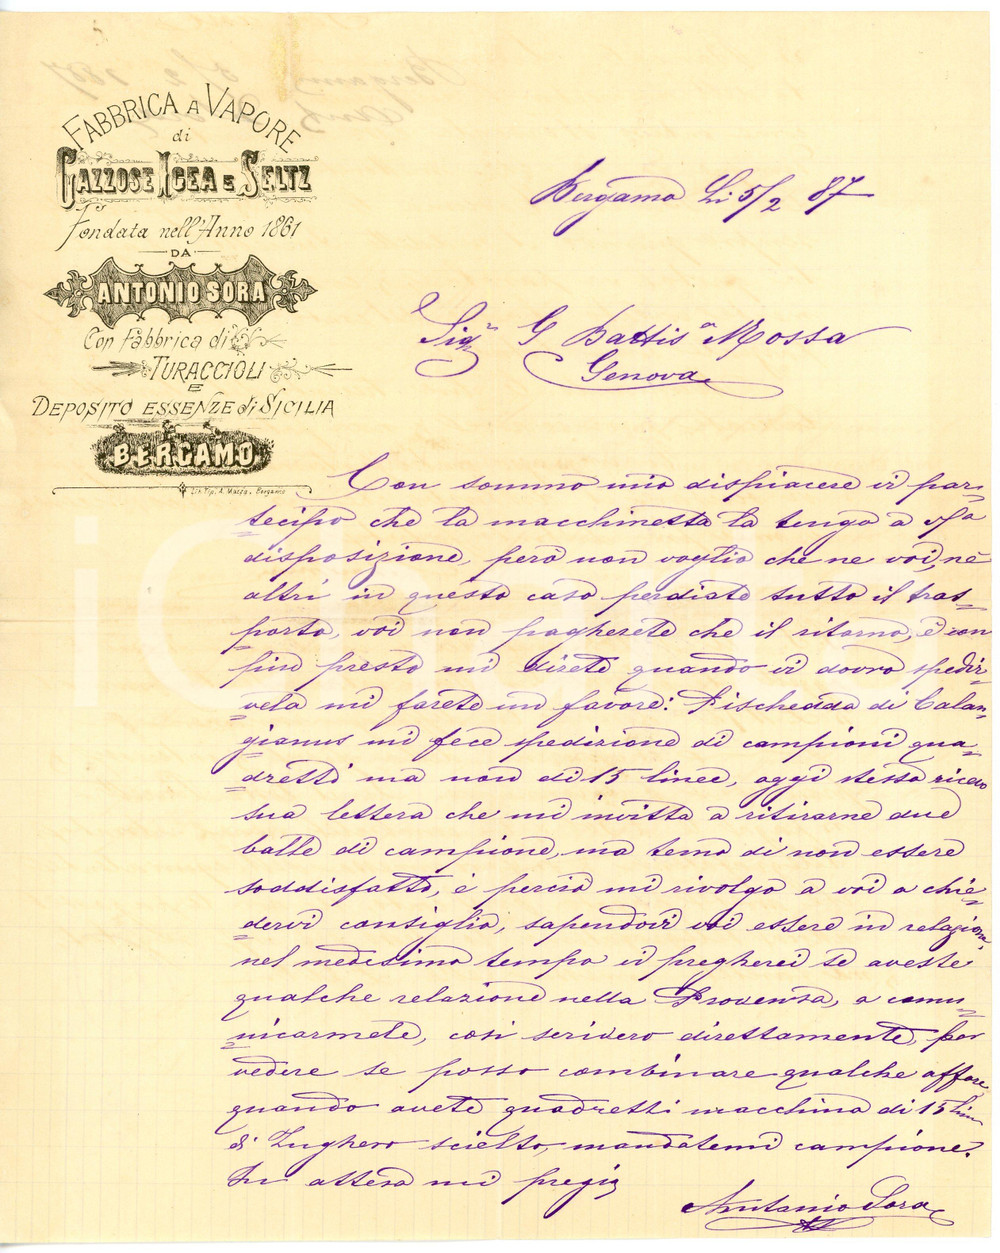 FABBRICA A VAPORE
di
GAZZOSE IGEA E SELTZ
Fondata nell'Anno 1861
DA
ANTONIO SORA
Con Fabbrica di
TURACCIOLI
E
DEPOSITO ESSENZE di SICILIA
BERGAMO
Lit. Tip. A. Mazza, Bergamo
Bergamo Li 5/2 87
Sigr G Battisa Mossa
Genova
Con sommo mio dispiacere vi par=
tecipo che la macchinetta la tengo a Vsa
disposizione, però non voglio che ne voi, nè
altri in questo caso perdiate tutto il tras=
porto, voi non pagherete che il ritorno, è con
più presto mi direte quando vi dovrò spedir=
vela mi farete un favore: Pischedda di Calan=
gianus mi fece spedizione di campioni qua=
dretti ma non di 15 linee, oggi stesso ricevo
sua lettera che mi invitta a ritirarne due
balle di campione, ma temo di non essere
soddisfatto, è perciò mi rivolgo a voi a chie=
dervi consiglio, sapendovi voi essere in relazione,
nel medesimo tempo vi pregherei se aveste
qualche relazione nella Provensa, a comu=
nicarmete, così scrivero direttamente, per
vedere se posso combinare qualche affare,
quando avete quadretti macchina di 15 lin
di Zughero scielto, mandatemi campione.
In attesa mi pregio
Antonio Sora
iCharta